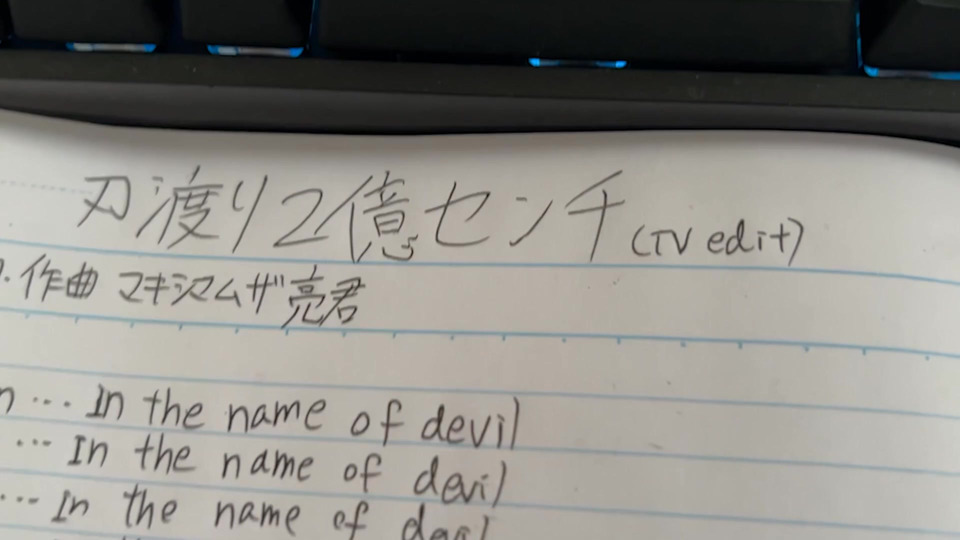 刃渡り2億センチ(TV edit)
作曲 マキシマムザ亮君
… In the name of devil
… In the name of devil
… In the name of